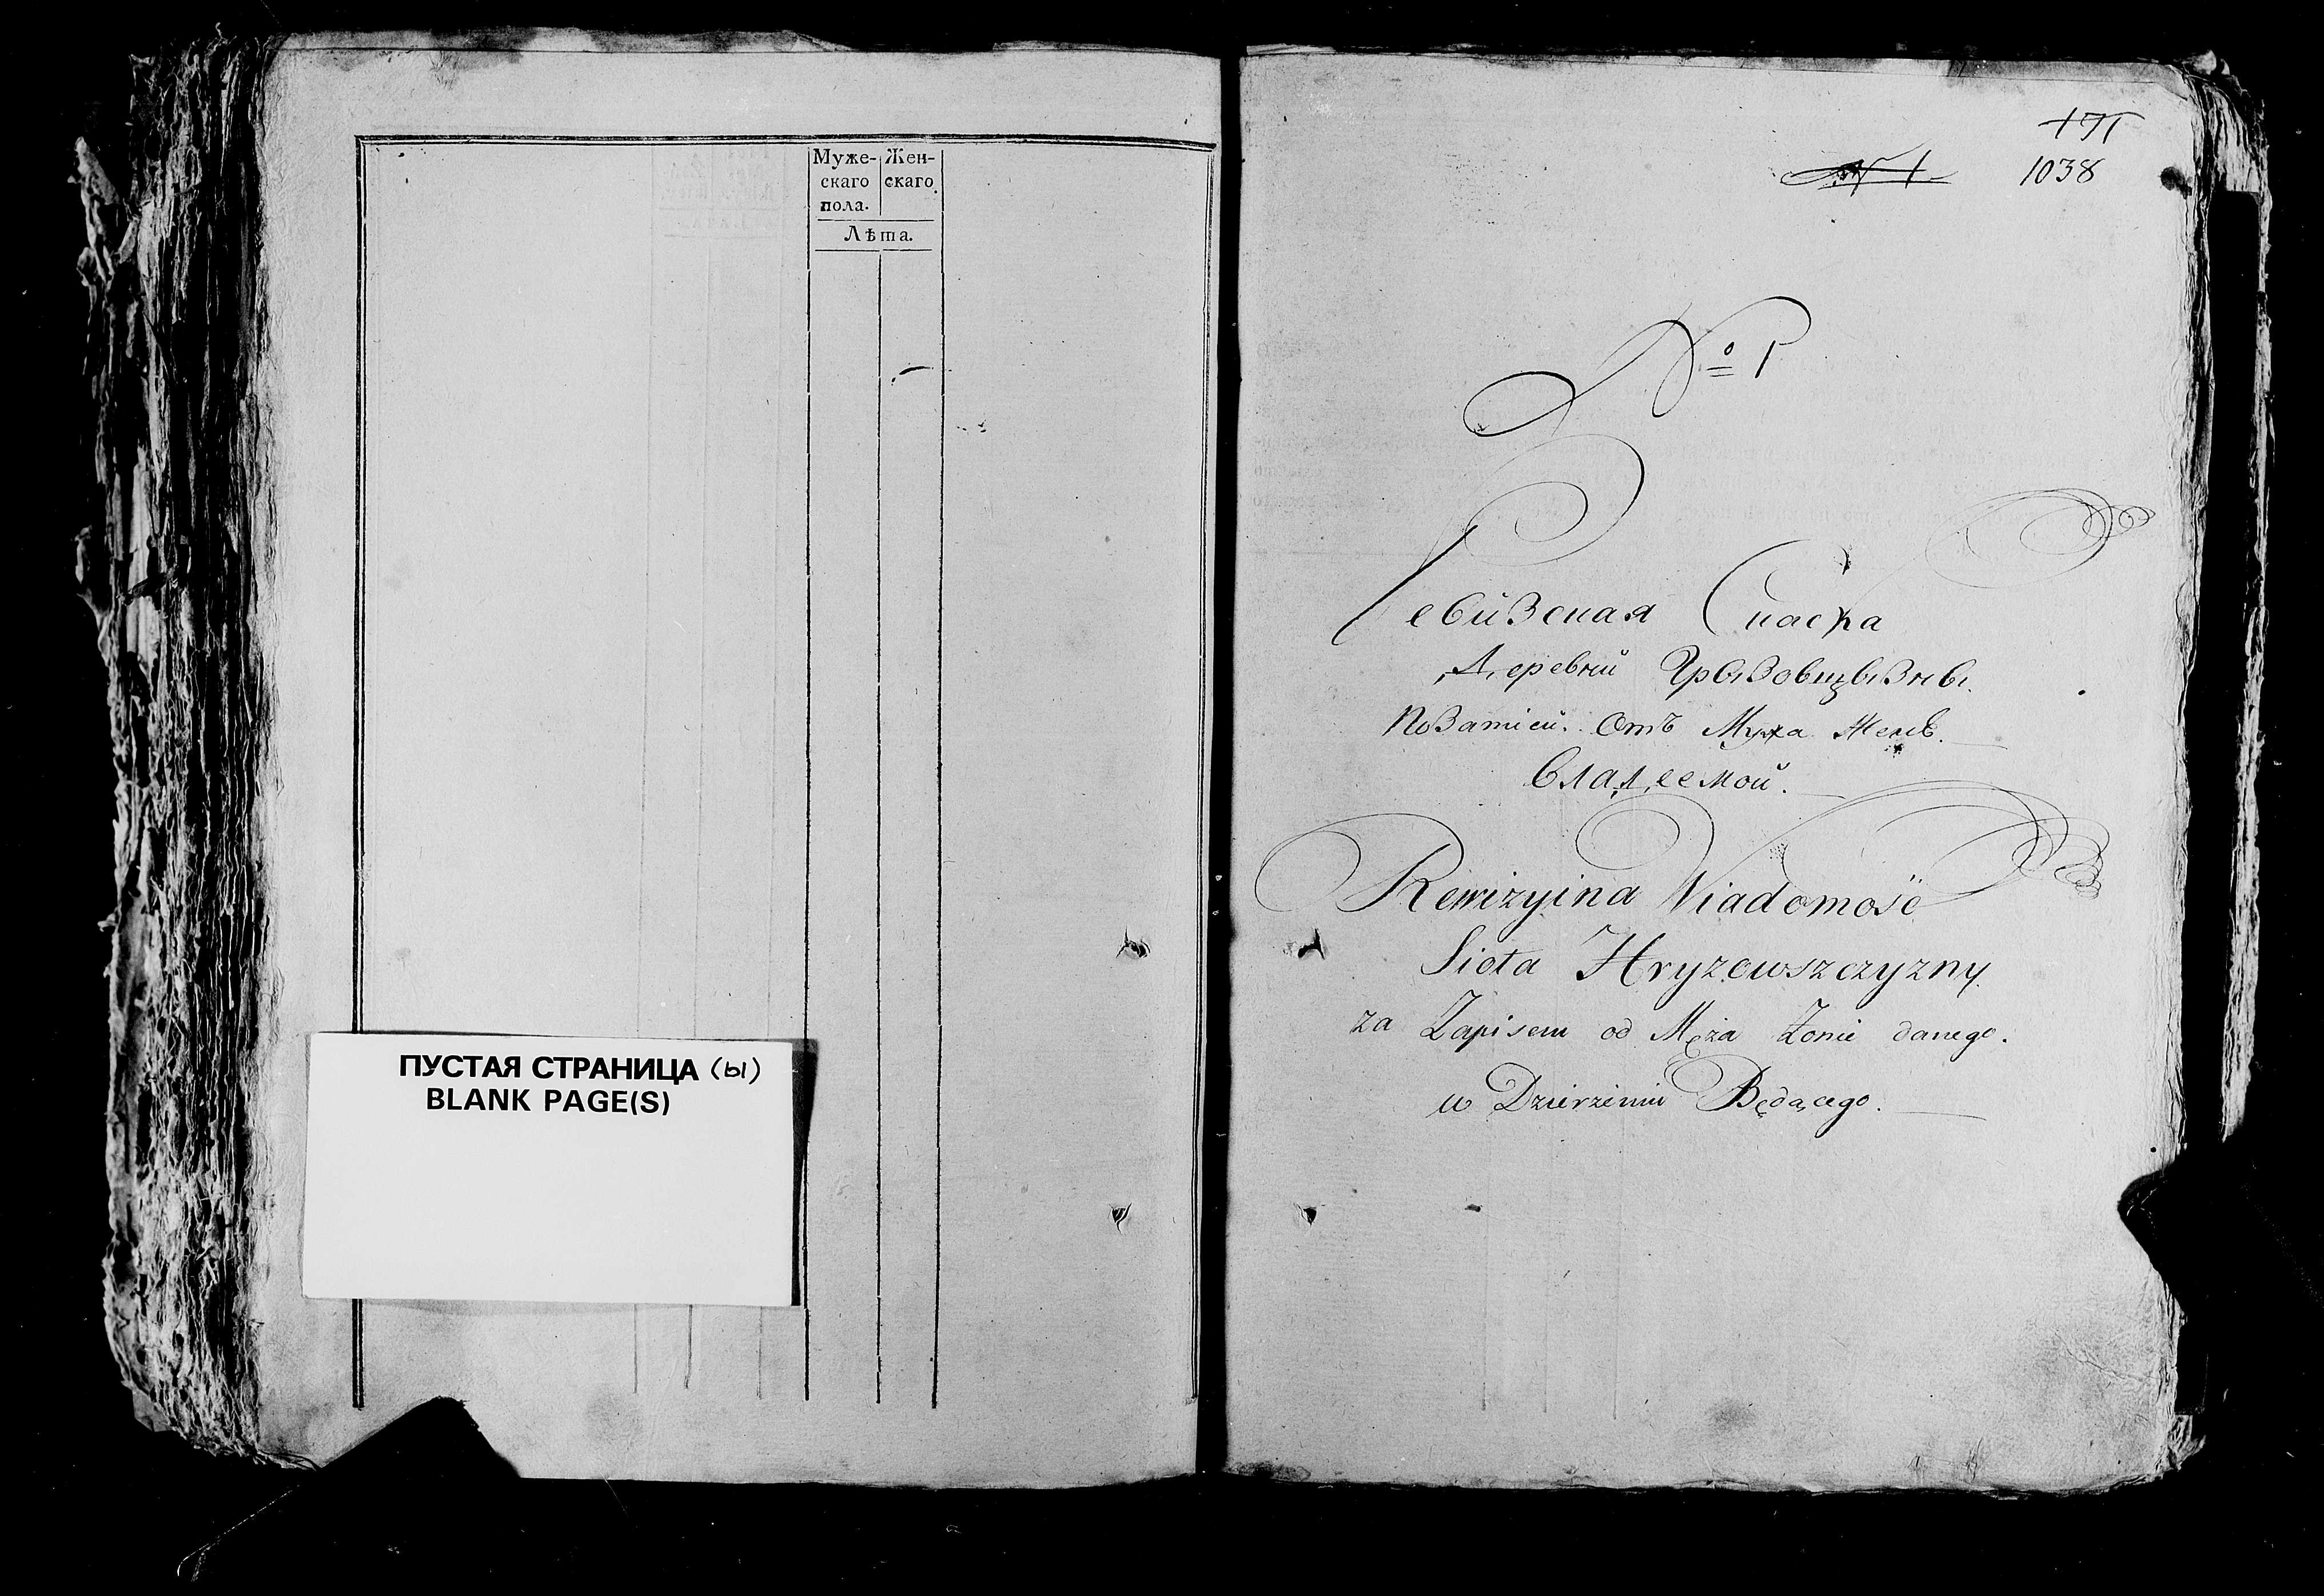 Муже-
скаго
пола.
Жен-
скаго.
Лѣта.
ПУСТАЯ СТРАНИЦА (ы)
BLANK PAGE(S)
171
№ 1
1038
№ 1
Ревизская Скаска
Деревни Грызовщызны
По Записи. Отъ Мужа Женѣ.
Владеемой.
Rewizyina Wiadomość
Sioła Hryzowszczyzny.
za Zapisem od Męża Żonie danego.
w Dzierżeniu Będącego.